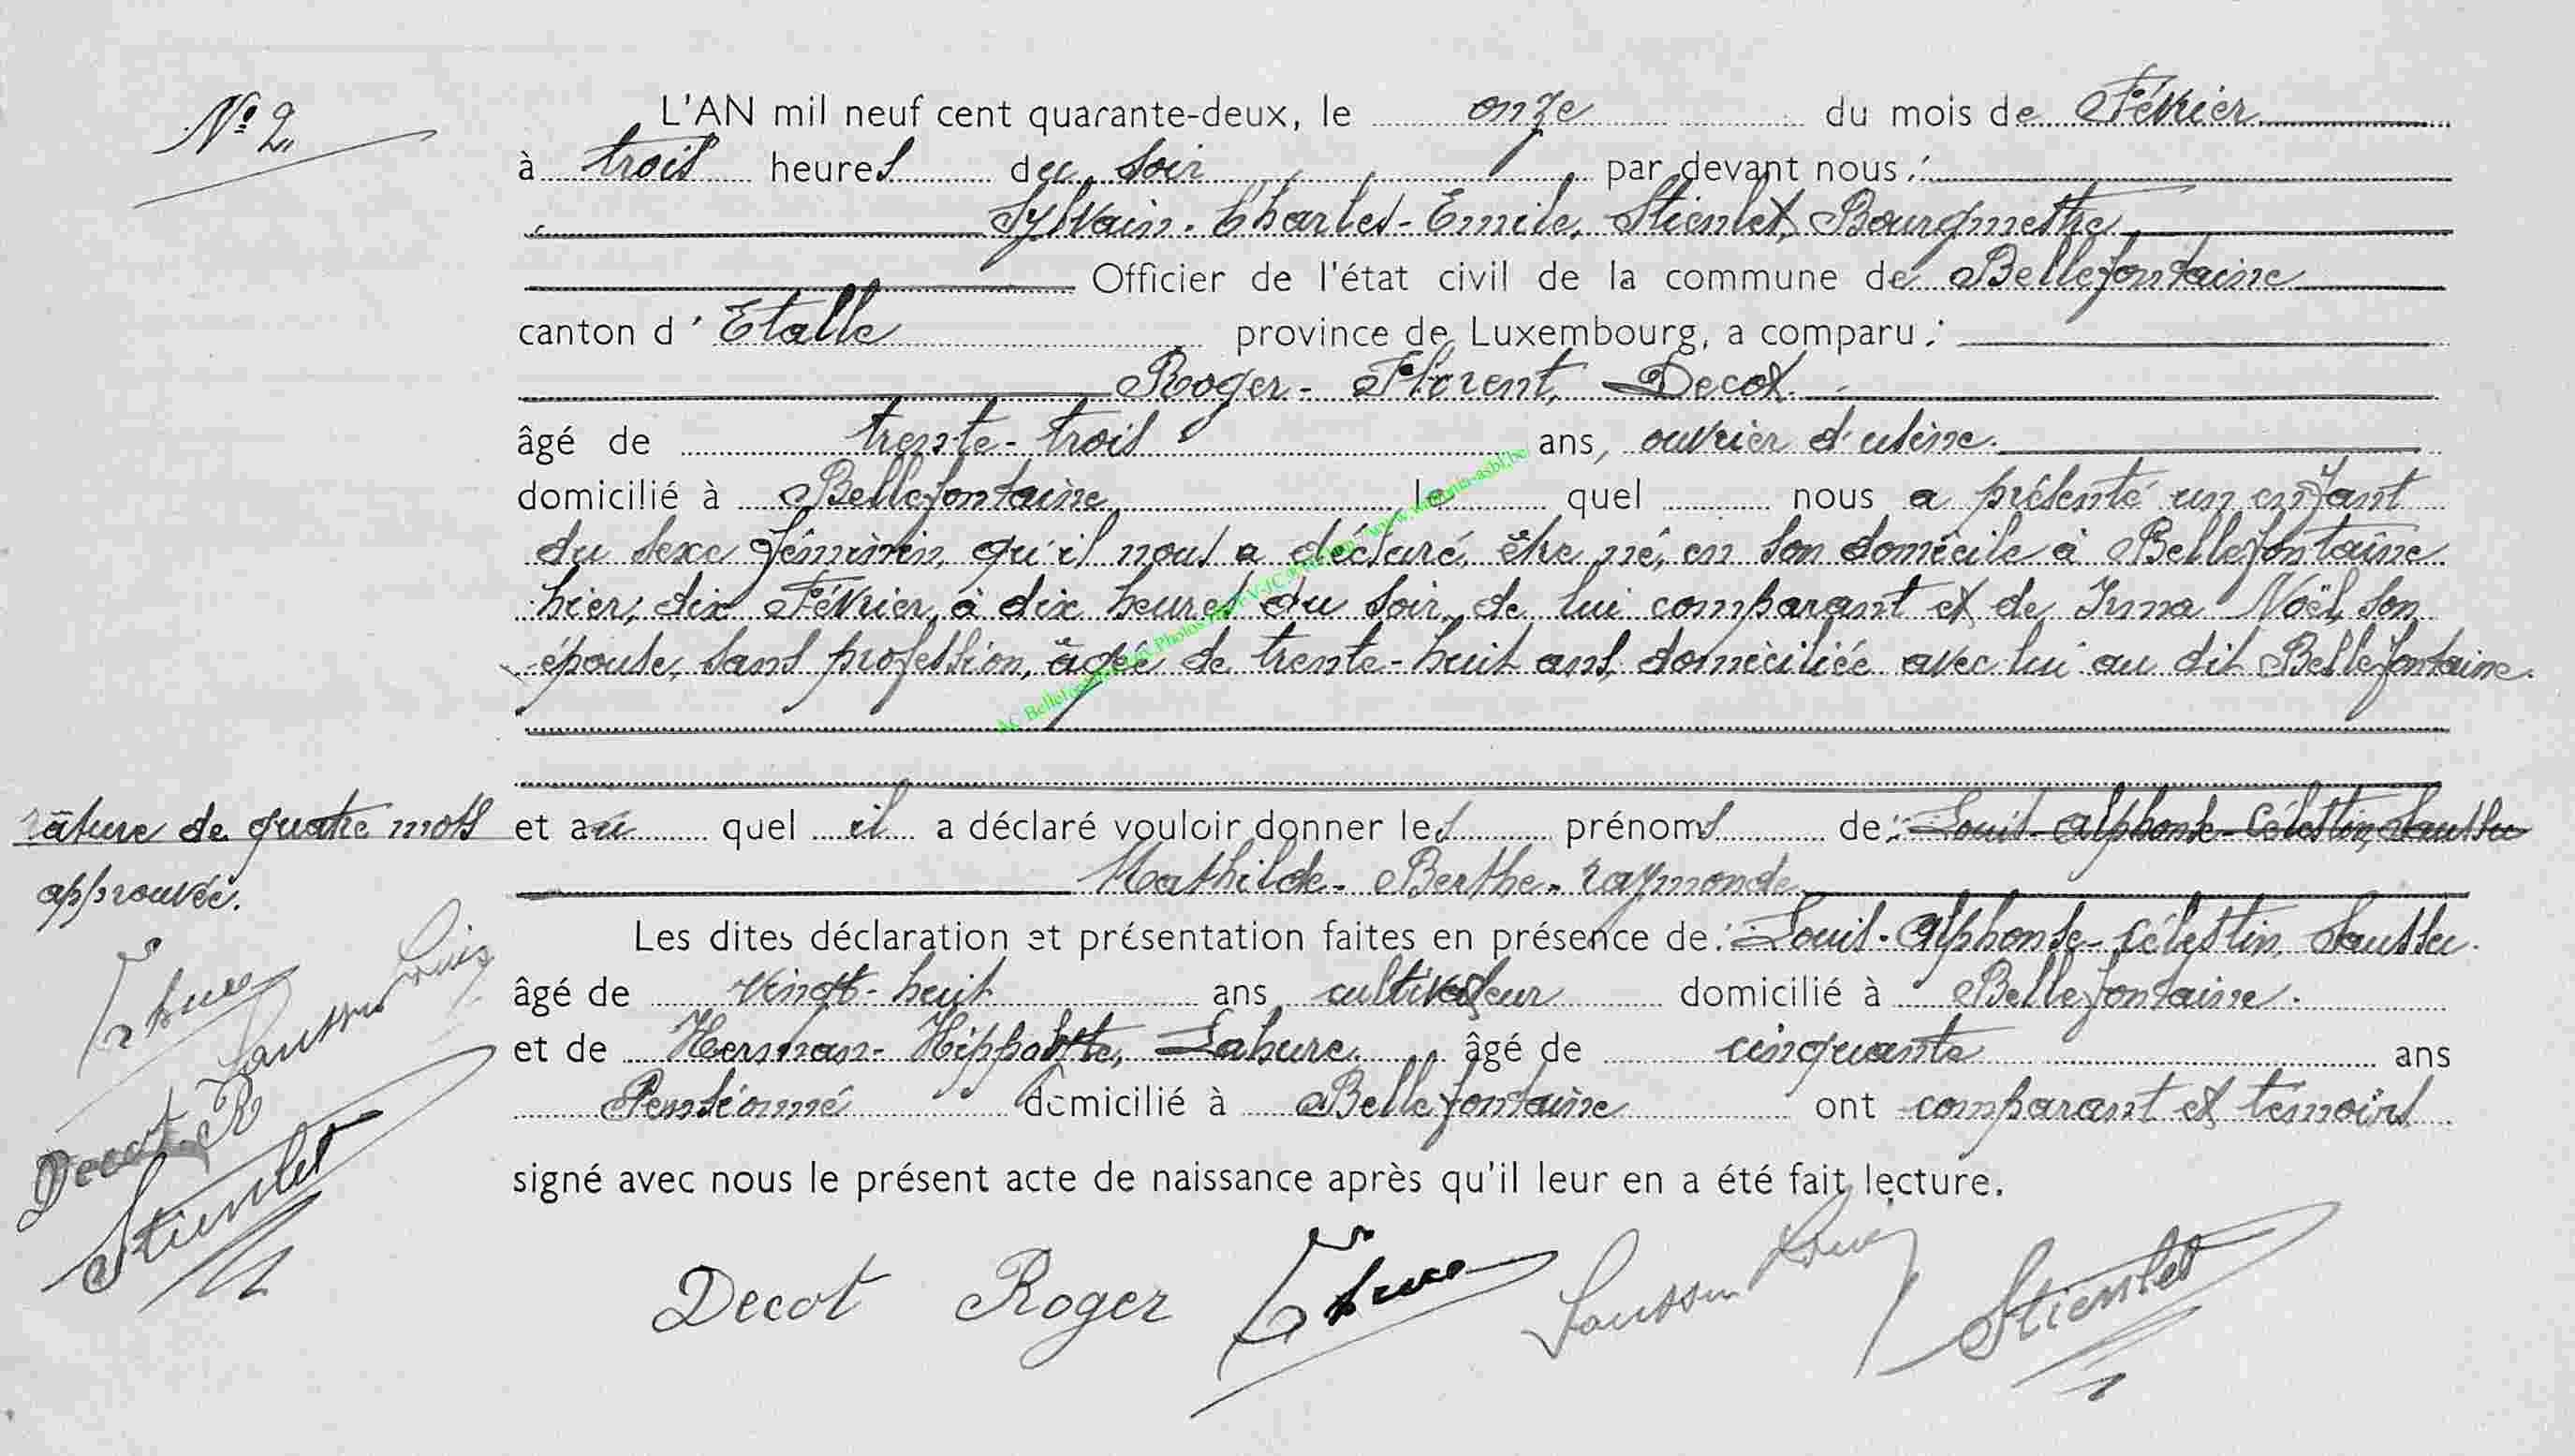 N° 2
L'AN mil neuf cent quarante-deux, le onze du mois de Février
à trois heures du soir par devant nous :
Sylvain-Charles-Emile, Stienlet, Bourgmestre
Officier de l'état civil de la commune de Bellefontaine
canton d' Etalle province de Luxembourg, a comparu :
Roger-Florent, Decot.
âgé de trente-trois ans, ouvrier d'usine.
domicilié à Bellefontaine le quel nous a présenté un enfant
du sexe féminin, qu'il nous a déclaré, être né, en son domicile à Bellefontaine
hier, dix Février, à dix heures du soir, de lui comparant et de Irma Noël, son
épouse, sans profession, âgée de trente-huit ans, domiciliée avec lui au dit Bellefontaine.
râture de quatre mots
approuvée.
et au quel il a déclaré vouloir donner les prénoms de : Louis-Alphonse-Célestin, Saussu
Mathilde-Berthe-Raymonde
Les dites déclaration et présentation faites en présence de : Louis-Alphonse-Célestin, Saussu.
âgé de vingt-huit ans cultivateur domicilié à Bellefontaine.
et de Herman-Hippolyte, Lahure, âgé de cinquante ans
Pensionné domicilié à Bellefontaine ont comparant et témoins
signé avec nous le présent acte de naissance après qu'il leur en a été fait lecture.
Saussu Louis
Decot R
Stienlet
Decot Roger Saussu Louis Stienlet